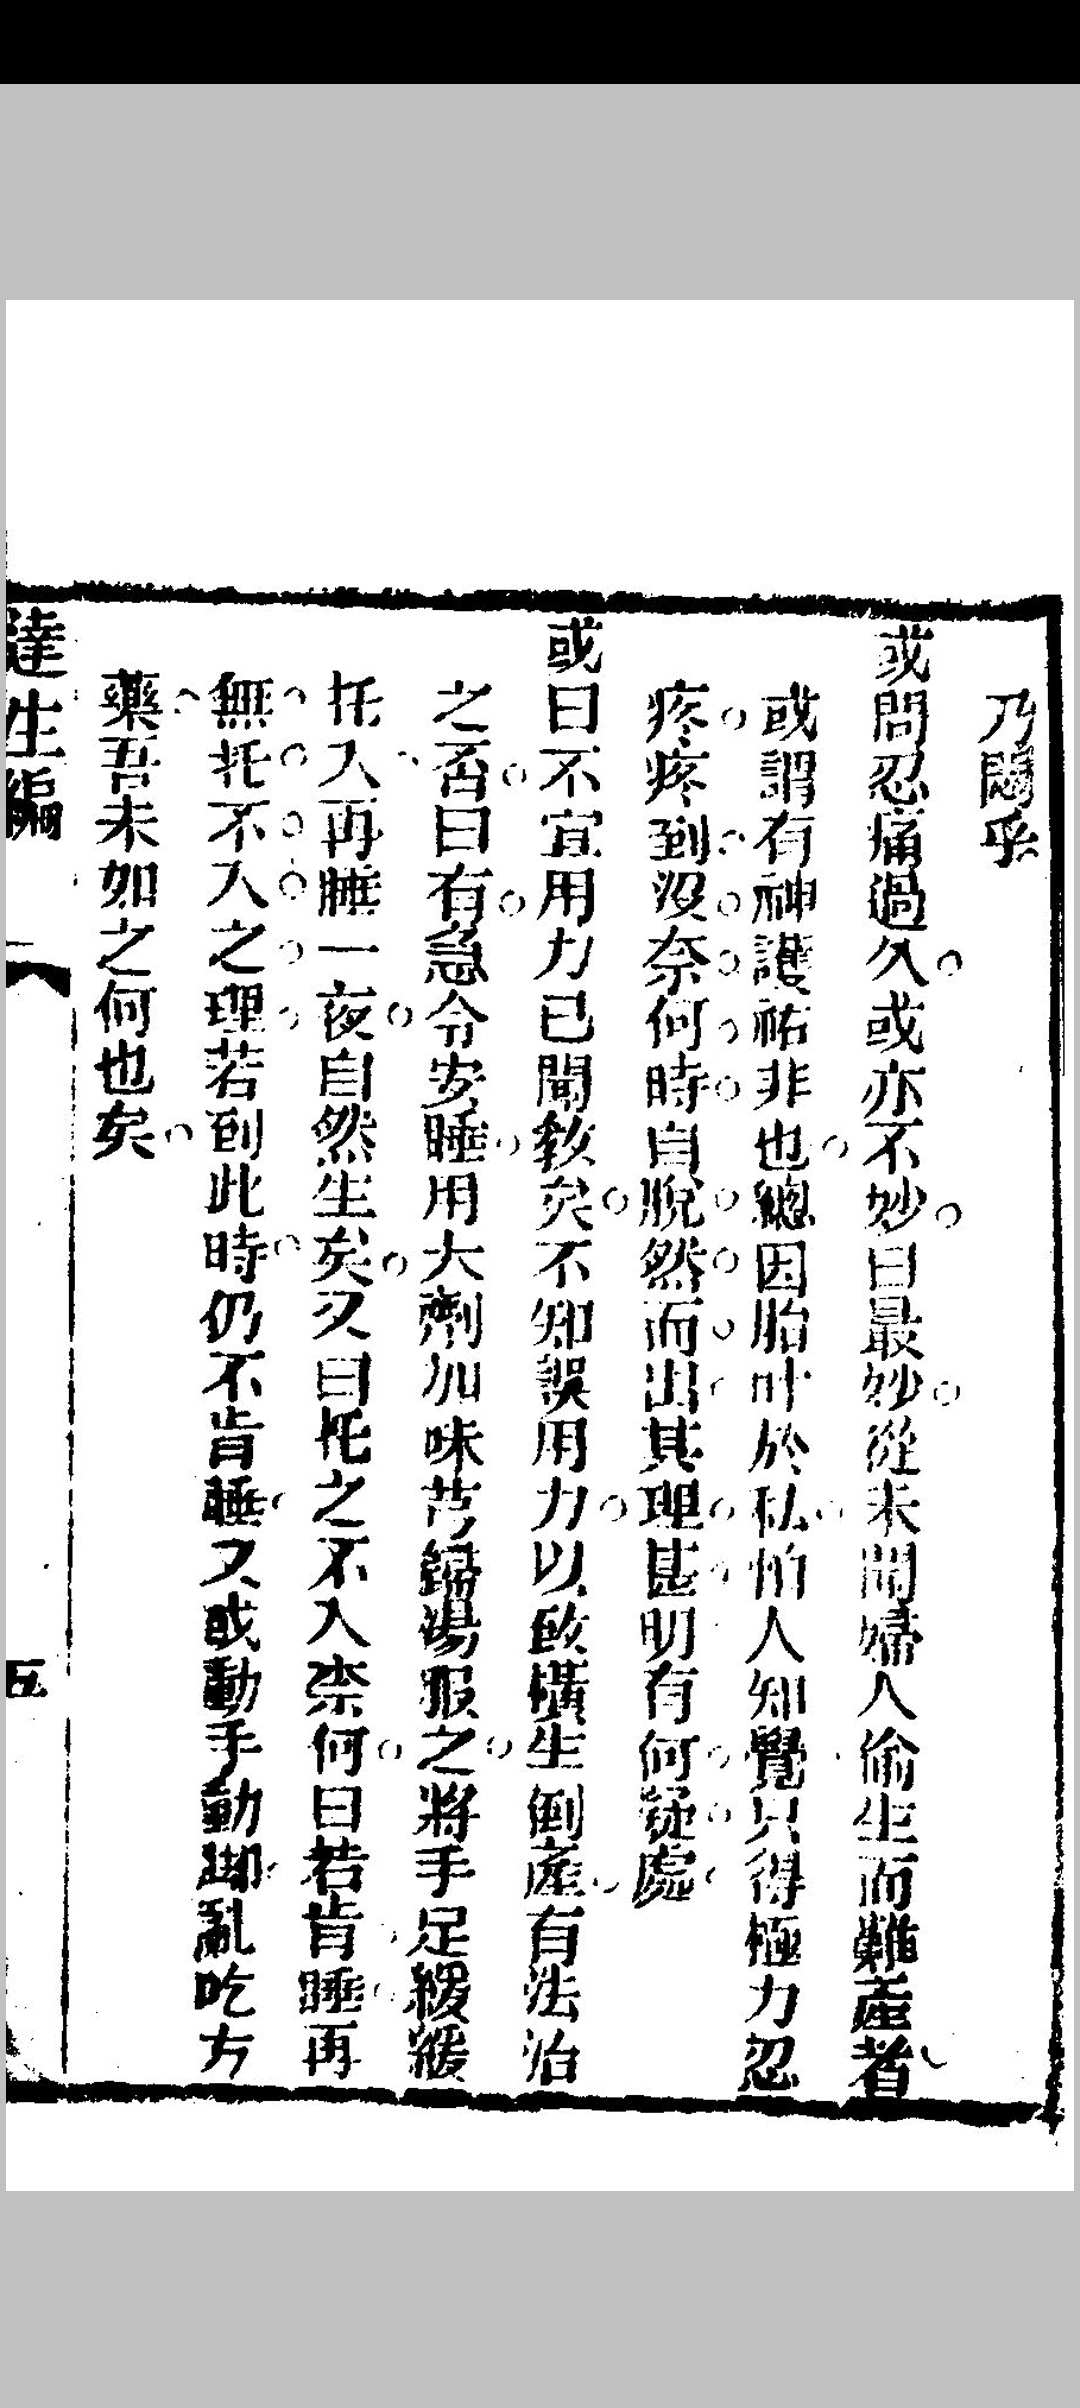 乃悶乎
或問忍痛過久或亦不妙曰最妙從未聞婦人偷生而難產者
或謂有神護祐非也總因胎叶於私怕人知覺只得極力忍
疼疼到沒奈何時自脫然而出其理甚明有何疑處
或曰不宜用力已聞敎矣不知誤用力以致橫生倒產有法治
之否曰有急令安睡用大劑加味芎歸湯服之將手足緩緩
托入再睡一夜自然生矣又曰托之不入柰何曰若肯睡再
無托不入之理若到此時仍不肯睡又或動手動腳亂吃方
藥吾未如之何也矣
達生編
五